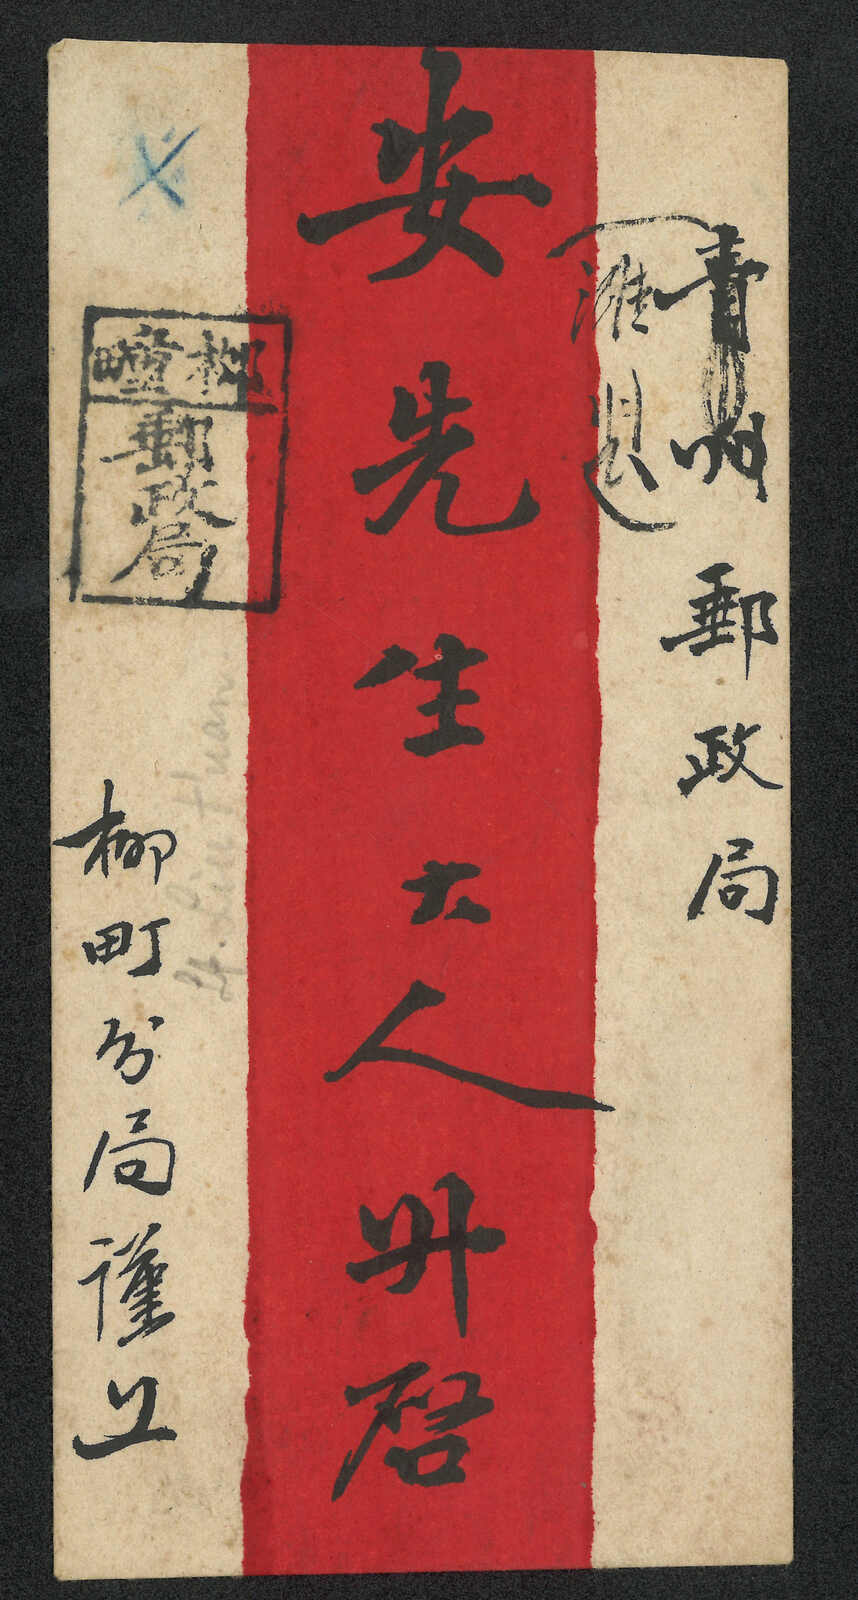 青州郵政局
濰縣
安先生大人升啓
柳疃
郵政局
柳町分局謹上
Liu Huan